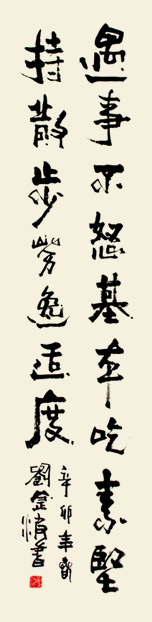 遇事不怒基本吃素堅
持散步勞逸适度
辛卯年
劉書